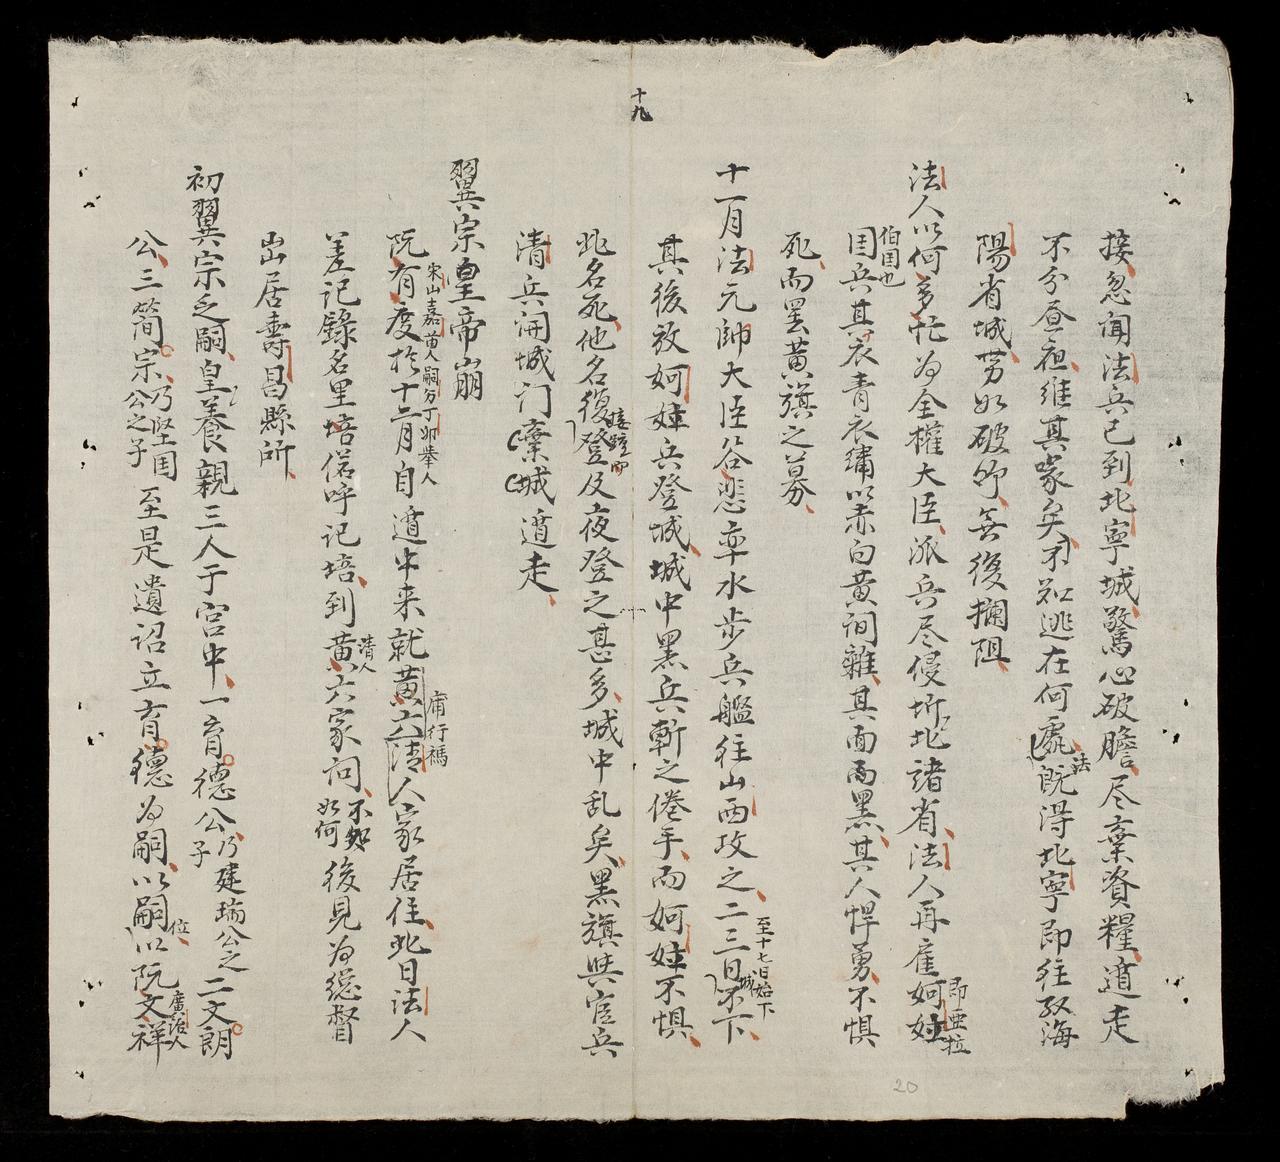 十九
接忽聞法兵已到北寧城驚心破膽尽棄資糧道走
不分昼夜維其喙矣不知逃在何處法既得北寧即往攻海
陽省城勢如破竹無復攔阻
法人以何多忙為全權大臣派兵尽侵圻北諸省法人再雇妸妵即亜拉
伯囯也
囯兵其衣青衣繡以赤白黄間雜其面面黑其人悍勇不惧
死而罢黄旗之募
十一月法元帥大臣谷悲率水步兵艦往山西攻之二三日不下至十七日始下城
其後放妸妵兵登城城中黑兵斬之倦手而妸妵不惧
此名死他名復接踵而登及夜登之甚多城中乱矣黑旗與官兵
清兵開城门棄城遁走
翼宗皇帝崩
阮有度宋山嘉苗人嗣分丁卯舉人於十二月自道中来就黄六清人庯行碼家居住此日法人
差記錄名里培偌呼記培到黄六清人家问不知如何後見為總督
山居壽昌縣所
初翼宗乏嗣皇養親三人于宫中一育德公乃建瑞公之子二文朗
公三简宗乃堅囯公之子至是遺詔立育德為嗣以嗣位以阮文祥廣治人
20